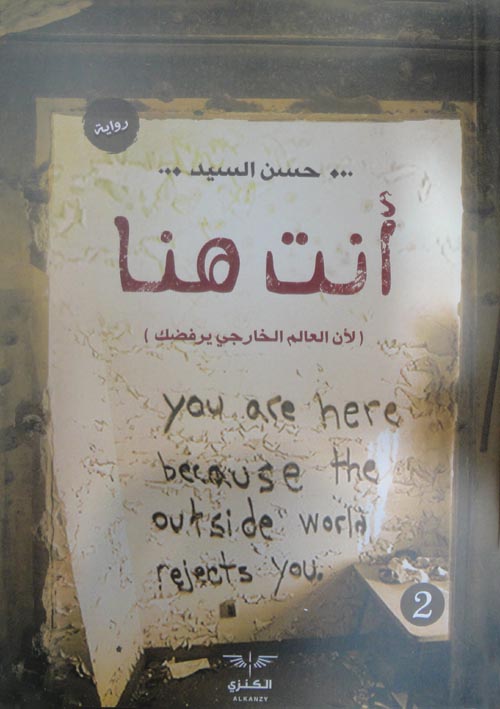 رواية
... حسن السيد ...
أنت هنا
( لأن العالم الخارجي يرفضك )
you are here
because the
outside world
rejects you.
2
الكنزي
ALKANZY